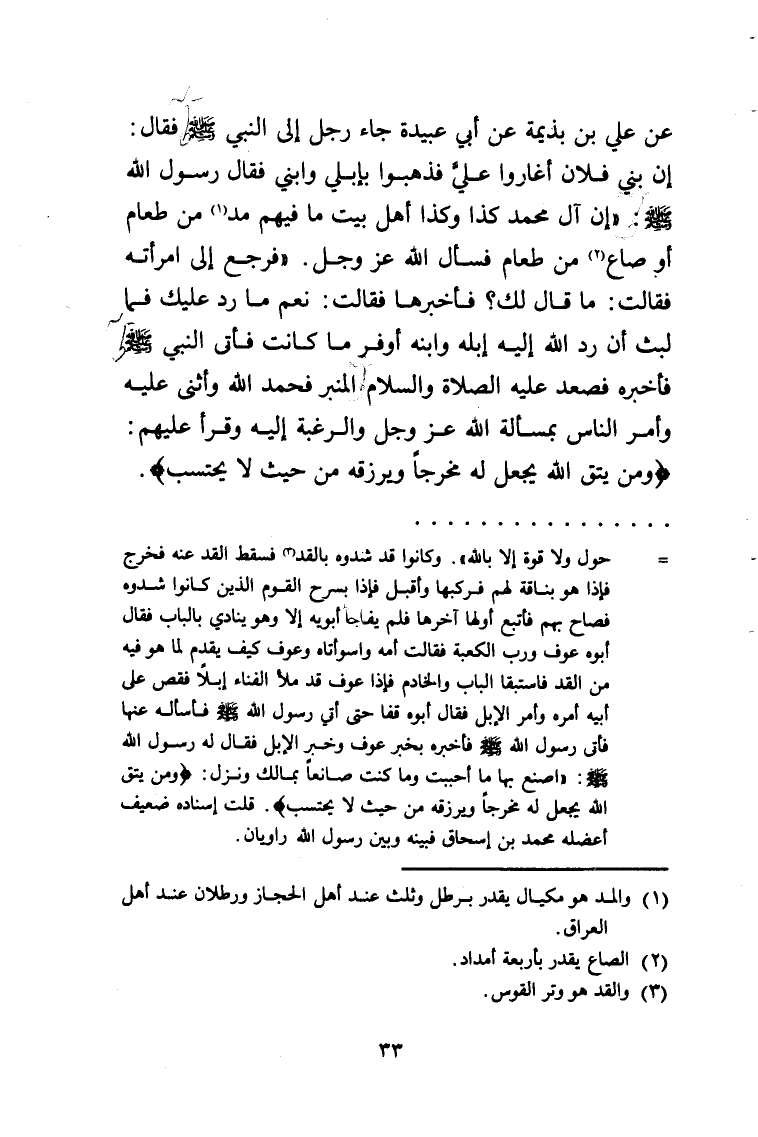 عن علي بن بذيمة عن أبي عبيدة جاء رجل إلى النبي ﷺ فقال:
إن بني فلان أغاروا عليَّ فذهبوا بإبلي وابني فقال رسول الله
ﷺ: «إن آل محمد كذا وكذا أهل بيت ما فيهم مد(١) من طعام
أو صاع(٢) من طعام فسأل الله عز وجل. «فرجع إلى امرأته
فقالت: ما قال لك؟ فأخبرها فقالت: نعم ما رد عليك فما
لبث أن رد الله إليه إبله وابنه أوفر ما كانت فأتى النبي ﷺ
فأخبره فصعد عليه الصلاة والسلام المنبر فحمد الله وأثنى عليه
وأمر الناس بمسألة الله عز وجل والرغبة إليه وقرأ عليهم:
﴿ومن يتق الله يجعل له مخرجاً ويرزقه من حيث لا يحتسب﴾.
. . . . . . . . . . . . . . . .
= حول ولا قوة إلا بالله». وكانوا قد شدوه بالقد(٣) فسقط القد عنه فخرج
فإذا هو بناقة لهم فركبها وأقبل فإذا بسرح القوم الذين كانوا شدوه
فصاح بهم فأتبع أولها آخرها فلم يفاجأ أبويه إلا وهو ينادي بالباب فقال
أبوه عوف ورب الكعبة فقالت أمه واسوأتاه وعوف كيف يقدم لما هو فيه
من القد فاستبقا الباب والخادم فإذا عوف قد ملأ الفناء إبلاً فقص على
أبيه أمره وأمر الإبل فقال أبوه قفا حتى أتي رسول الله ﷺ فأسأله عنها
فأتى رسول الله ﷺ فأخبره بخبر عوف وخبر الإبل فقال له رسول الله
ﷺ: «اصنع بها ما أحببت وما كنت صانعاً بمالك ونزل: ﴿ومن يتق
الله يجعل له مخرجاً ويرزقه من حيث لا يحتسب﴾. قلت إسناده ضعيف
أعضله محمد بن إسحاق فبينه وبين رسول الله راويان.
(١) والمد هو مكيال يقدر برطل وثلث عند أهل الحجاز ورطلان عند أهل
العراق.
(٢) الصاع يقدر بأربعة أمداد.
(٣) والقد هو وتر القوس.
٣٣